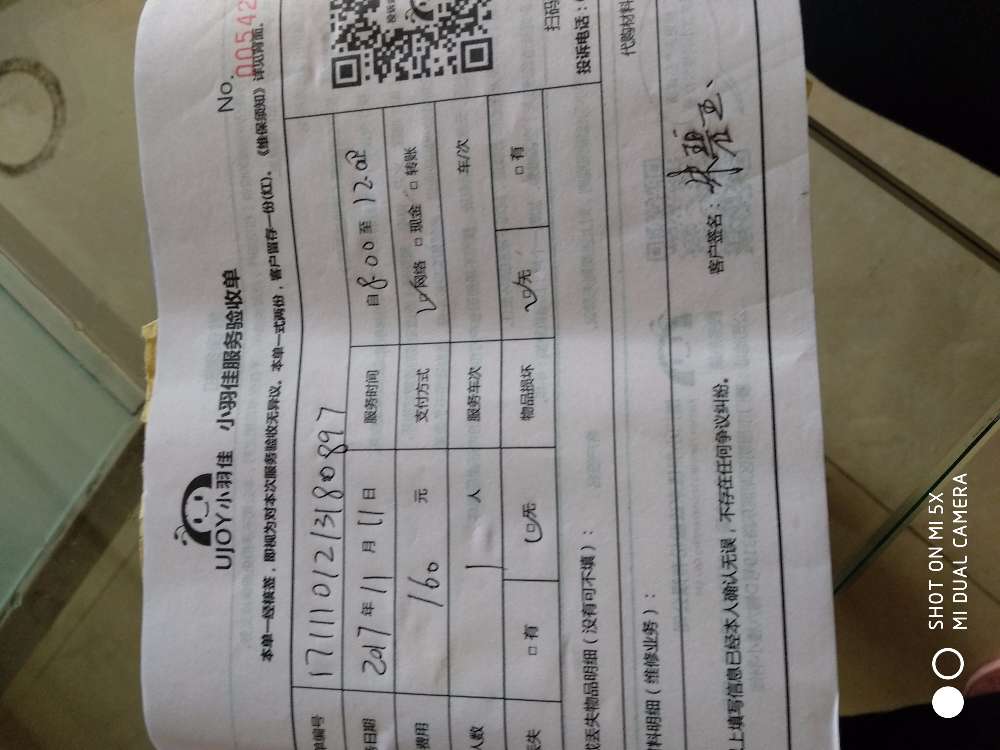 UJOY小羽佳 小羽佳服务验收单
No. 00542
本单一经核签，即视为对本次服务验收无异议。本单一式两份，客户留存一份(红)。《维保须知》详见背面。
单编号 171110123180897
日期 2017年11月11日 服务时间 自8.00至12.00
费用 160元 支付方式 网络 现金 转账
人数 1人 服务车次 车/次
丢失 有 无 物品损坏 无 有
或丢失物品明细（没有可不填）：
扫码
投诉电话：
料明细（维修业务）：
代购材料
上填写信息已经本人确认无误，不存在任何争议纠纷。 客户签名：
SHOT ON MI 5X
MI DUAL CAMERA